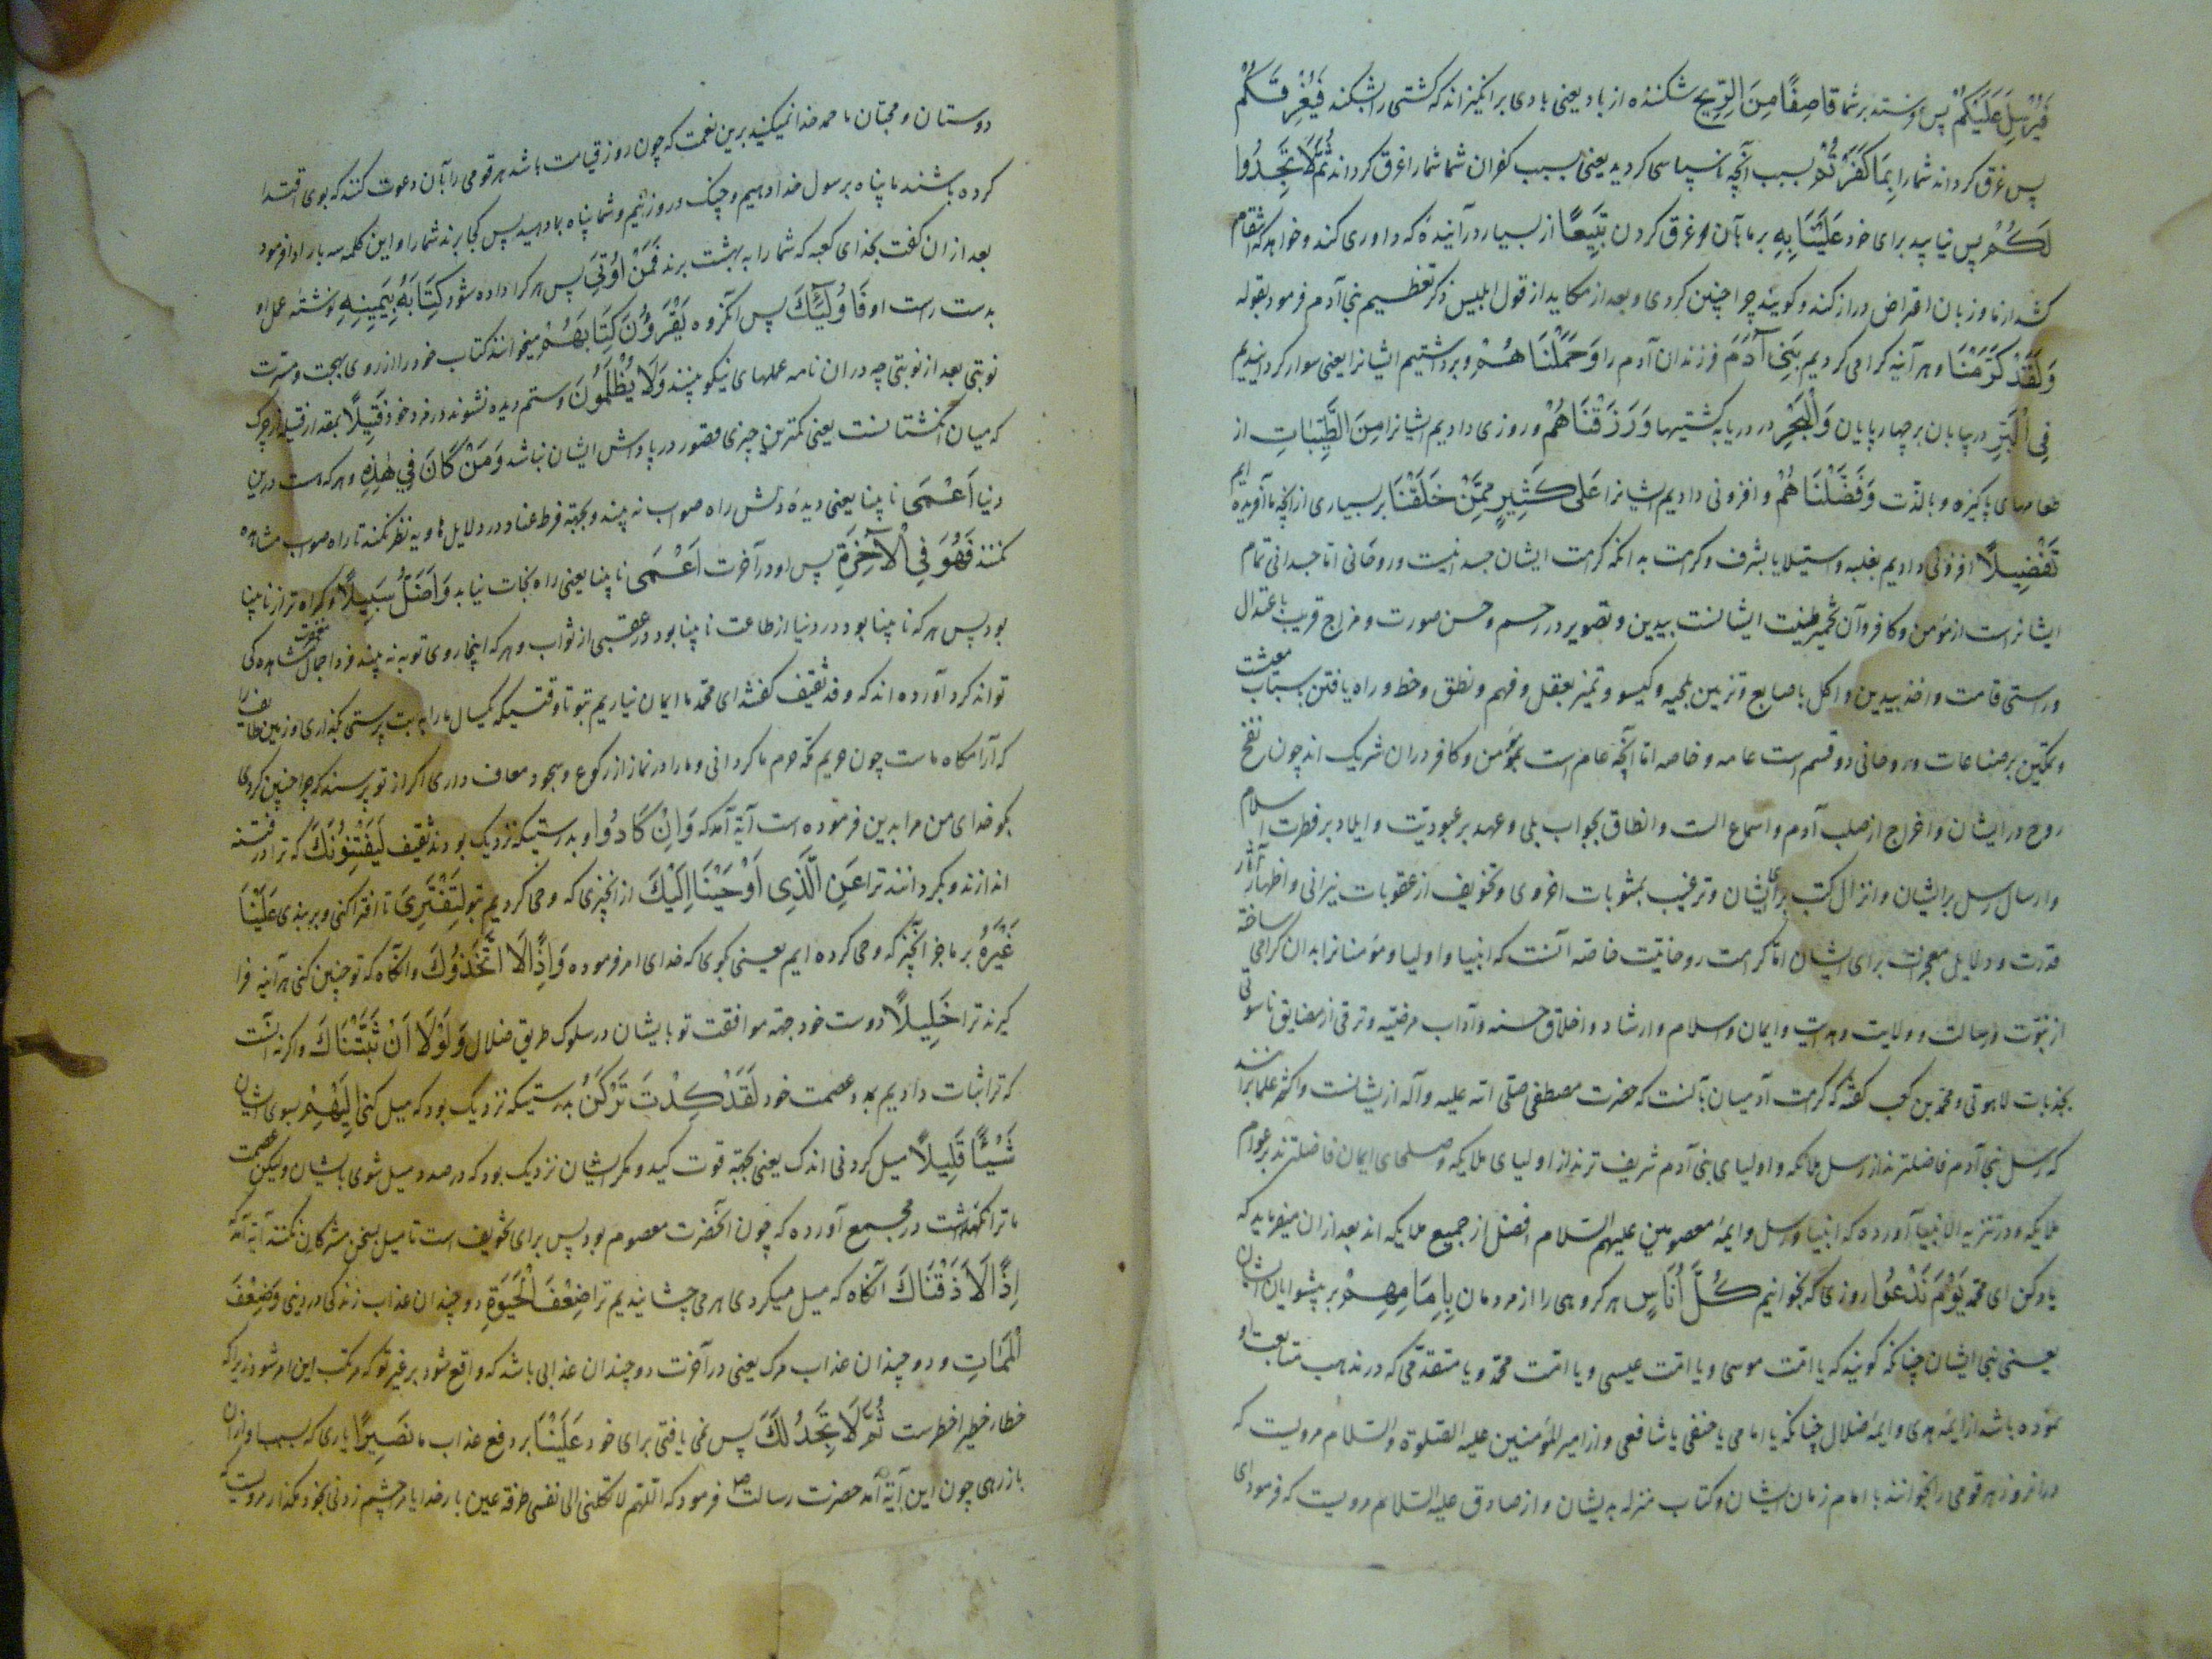 فَيُرْسِلَ عَلَيْكُمْ پس بفرستد بر شما قَاصِفًا مِنَ الرِّيحِ شکننده از باد یعنی بادی برانگیزاند که کشتی را بشکند فَيُغْرِقَكُمْ
پس غرق کرداند شما را بِمَا كَفَرْتُمْ بسبب آنچه ناسپاسی کردید یعنی بسبب کفران شما شما را غرق کرداند ثُمَّ لَا تَجِدُوا
لَكُمْ پس نیابید برای خود عَلَيْنَا بِهِ بر ما بآن غرق کردن تَبِيعًا از بسیار درآینده که داوری کند و خواهد که انتقام
کشد از ما و زبان اعتراض دراز کند و کوید چرا چنین کردی و بعد از مکاید از قول ابلیس ذکر تعظیم بنی آدم فرمود بقوله
وَلَقَدْ كَرَّمْنَا و هر آینه کرامی کردیم بَنِي آدَمَ فرزندان آدم را وَحَمَلْنَاهُمْ و برداشتیم ایشانرا یعنی سوار کردانیدیم
فِي الْبَرِّ در بیابان بر چهارپایان وَالْبَحْرِ در دریا بکشتیها وَرَزَقْنَاهُمْ و روزی دادیم ایشانرا مِنَ الطَّيِّبَاتِ از
طعامهای پاکیزه و با لذت وَفَضَّلْنَاهُمْ و افزونی دادیم ایشانرا عَلَى كَثِيرٍ مِمَّنْ خَلَقْنَا بر بسیاری از آنچه ما آفریده ایم
تَفْضِيلًا افزونی دادیم بغلبه و استیلا یا بشرف و کرامت بدانکه کرامت ایشان جسدانیست و روحانی اما جسدانی تمام
ایشانراست از مؤمن و کافر و آن تخمیر طینت ایشانست بیدین و تصویر در رحم و حسن صورت و مزاج قریب باعتدال
و راستی قامت و اخذ بیدین و اکل باصابع و تزیین بلحیه و کیسو و تمیز بعقل و فهم و نطق و خط و راه یافتن باسباب معیشت
و تمکین بر صناعات و روحانی دو قسم است عامه و خاصه اما آنچه عام است بمؤمن و کافر دران شریک اند چون نفخ
روح در ایشان و اخراج از صلب آدم و اسماع الست و انطاق بجواب بلی و عهد بر عبودیت و ایلاد بر فطرت اسلام
و ارسال رسل بر ایشان و انزال کتب برای ایشان و ترغیب بمثوبات اخروی و تخویف از عقوبات نیرانی و اظهار آثار
قدرت و دلایل معجزات برای ایشان اما کرامت روحانیت خاصه آنست که انبیا و اولیا و مؤمنانرا بدان کرامی ساخته
از نبوت و رسالت و ولایت و هدایت و ایمان و اسلام و ارشاد و اخلاق حسنه و آداب مرضیه و ترقی از مضایق ناسوتی
بجذبات لاهوتی و محمد بن کعب کفته که کرامت آدمیان بآنست که حضرت مصطفی صلی الله علیه و آله از ایشانست و اکثر علما برانند
که رسل بنی آدم فاضلترند از رسل ملائکه و اولیای بنی آدم شریف ترند از اولیای ملایکه و صلحای ایمان فاضلترند بر عوام
ملایکه و در تنزیه الانبیا آورده که انبیا و رسل و ایمه معصومین علیهم السلام افضل از جمیع ملایکه اند بعد ازان میفرماید که
یاد کن ای محمد يَوْمَ نَدْعُوا روزی که بخوانیم كُلَّ أُنَاسٍ هر کروهی را از مردمان بِإِمَامِهِمْ بر پیشوایان ایشان
یعنی نبی ایشان چنانکه کویند که یا امت موسی و یا امت عیسی و یا امت محمد و یا متقدمی که در مذهب متابعت او
نموده باشد از ایمه هدی و ایمه ضلال چنانکه یا امامی یا حنفی یا شافعی و از امیر المؤمنین علیه الصلوة والسلام مرویست که
در آن روز هر قومی را بخوانند با امام زمان ایشان و کتاب منزله بدیشان و از صادق علیه السلام مرویست که فرمود ای
دوستان و محبان ما حمد خدا نمیکنید برین نعمت که چون روز قیامت باشد هر قومی را بآن دعوت کنند که بوی اقتدا
کرده باشند ما پناه برسول خدا دهیم و چنک در وزنیم و شما پناه بما دهید پس کجا برند شما را و این کلمه سه بار ادا فرمود
بعد ازان کفت بخدای کعبه که شما را به بهشت برند فَمَنْ أُوتِيَ پس هر کرا داده شود كِتَابَهُ بِيَمِينِهِ نوشته عمل او
بدست راست او فَأُولَئِكَ پس آنکروه يَقْرَؤُنَ كِتَابَهُمْ میخوانند کتاب خود را از روی بهجت و مسرت
نوبتی بعد از نوبتی چه دران نامه عملهای نیکو بینند وَلَا يُظْلَمُونَ و ستم دیده نشوند در مزد خود فَتِيلًا بمقدار فتیله از چرک
که میان انکشتانست یعنی کمترین چیزی قصور در پاداش ایشان نباشد وَمَنْ كَانَ فِي هٰذِهِ و هر که هست درین
دنیا أَعْمَى نابینا یعنی دیده دلش راه صواب نه بیند و بجهة فرط عناد در دلایل ما و به نظر نکنند تا راه صواب مشاهده
کنند فَهُوَ فِي الْآخِرَةِ پس او در آخرت أَعْمَى نابینا یعنی راه نجات نیابد وَأَضَلُّ سَبِيلًا و کمراه تر از نابینا
بود پس هر که نابینا بود در دنیا از طاعت نابینا بود در عقبی از ثواب و هر که اینجا روی توبه نه بیند فردا جمال مغفرت مشاهده کی
تواند کرد آورده اند که وفد ثقیف کفتند ای محمد ما ایمان نیاریم بتو تا وقتیکه یکسال ما را به بت پرستی بکذاری و زمین طایف را
که آرامکاه ماست چون حریم مکه حرم ما کردانی و ما را در نماز از رکوع و سجود معاف داری اکر از تو پرسند که چرا چنین کردی
بکو خدای من مرا بدین فرموده است آیة آمد که وَإِنْ كَادُوا و بدرستیکه نزدیک بودند ثقیف لَيَفْتِنُونَكَ که ترا در فتنه
اندازند و بکردانند ترا عَنِ الَّذِي أَوْحَيْنَا إِلَيْكَ از آنچیزی که وحی کردیم بتو لِتَفْتَرِيَ تا افترا کنی و بربندی عَلَيْنَا
غَيْرَهُ بر ما جز آنچیز که وحی کرده ایم یعنی کوی که خدای امر فرموده وَإِذًا لَاتَّخَذُوكَ و آنکاه که تو چنین کنی هر آینه فرا
کیرند ترا خَلِيلًا دوست خود جهة موافقت تو بایشان در سلوک طریق ضلال وَلَوْلَا أَنْ ثَبَّتْنَاكَ و اکر نه آنست
که ترا ثبات دادیم بمدد عصمت خود لَقَدْ كِدْتَ تَرْكَنُ بدرستیکه نزدیک بود که میل کنی إِلَيْهِمْ بسوی ایشان
شَيْئًا قَلِيلًا میل کردنی اندک یعنی بجهة قوت کید و مکر ایشان نزدیک بود که درصدد میل شوی بایشان ولیکن عصمت
ما ترا نکذاشت در مجمع آورده که چون آنحضرت معصوم بود پس برای تخویف است تا میل بسخن مشرکان نکند آیة آمد که
إِذًا لَأَذَقْنَاكَ آنکاه که میل میکردی هر می چشانیدیم ترا ضِعْفَ الْحَيَوةِ دو چندان عذاب زندکی در دنیی وَضِعْفَ
الْمَمَاتِ و دو چندان عذاب مرک یعنی در آخرت دو چندان عذابی باشد که واقع شود بر غیر تو که مرتکب این امر شود زیرا که
خطار خطیر اخطرست ثُمَّ لَا تَجِدُ لَكَ پس نمی یافتی برای خود عَلَيْنَا بر دفع عذاب ما نَصِيرًا یاری که بسبب او ازان
بازرهی چون این آیة آمد حضرت رسالت فرمود که اللهم لا تکلنی الی نفسی طرفة عین بار خدایا در چشم زدنی بخود مکذار مرویست که